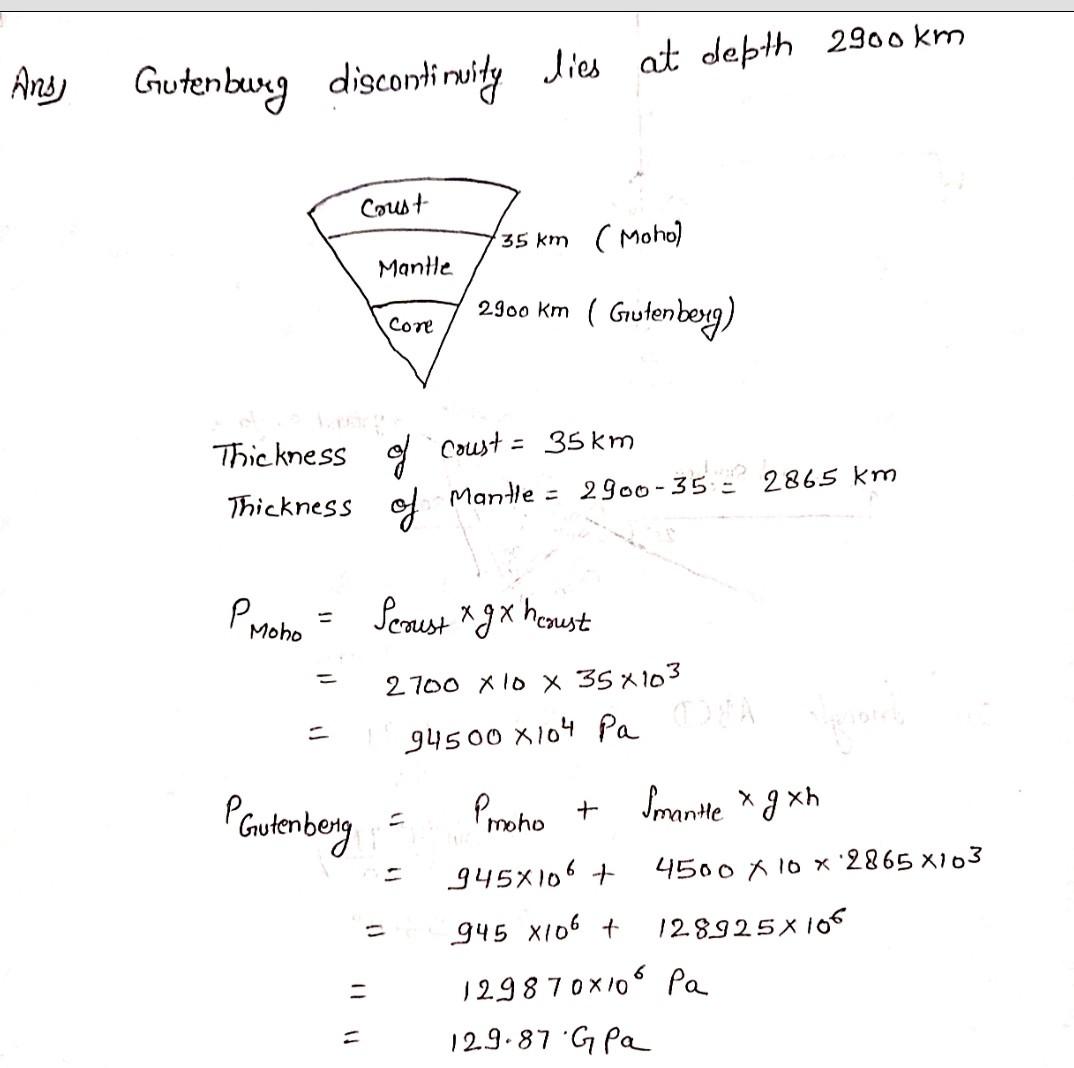 Ans) Gutenburg discontinuity lies at depth 2900 km
Crust
35 km (Moho)
Mantle
2900 km (Gutenberg)
Core
Thickness of Crust = 35 km
Thickness of Mantle = 2900-35 = 2865 km
P Moho = ρcrust × g × hcrust
= 2700 × 10 × 35 × 10³
= 94500 × 10⁴ Pa
P Gutenberg = Pmoho + ρmantle × g × h
= 945 × 10⁶ + 4500 × 10 × 2865 × 10³
= 945 × 10⁶ + 128925 × 10⁶
= 129870 × 10⁶ Pa
= 129.87 GPa